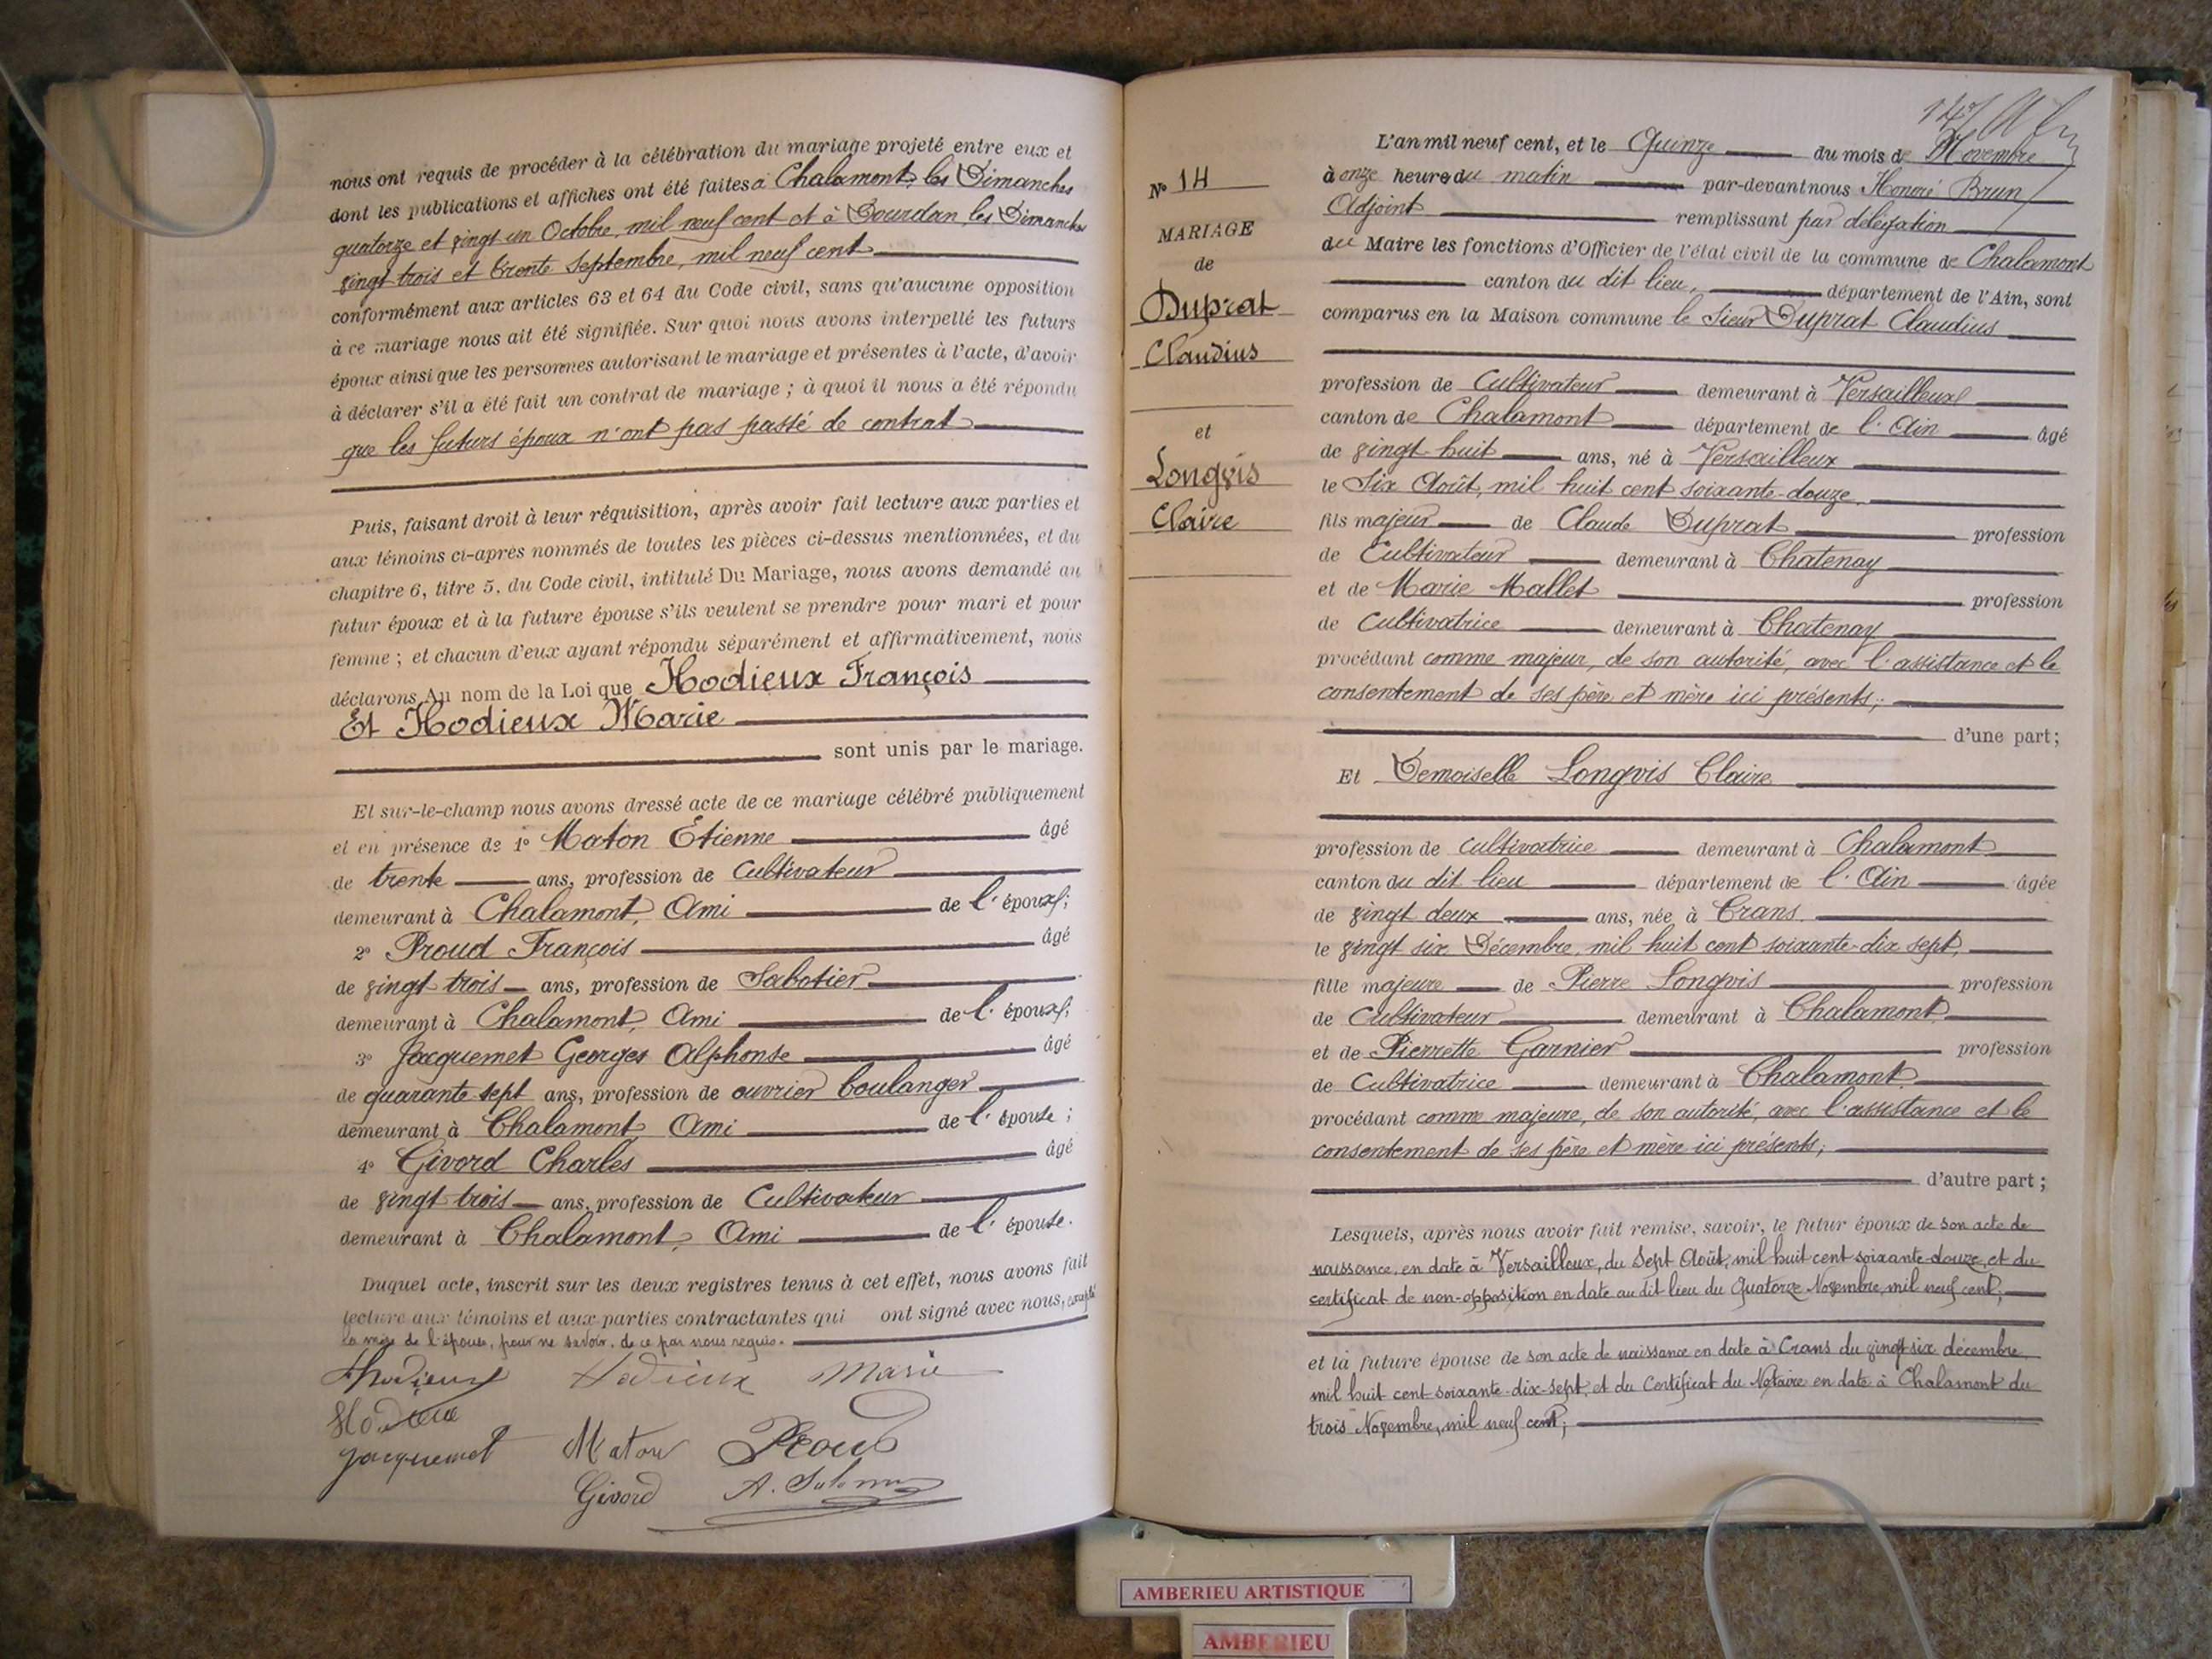 nous ont requis de procéder à la célébration du mariage projeté entre eux et
dont les publications et affiches ont été faites à Chalamont, les Dimanches
quatorze et vingt un Octobre, mil neuf cent et à Dourdan, les Dimanches
vingt trois et trente Septembre, mil neuf cent
conformément aux articles 63 et 64 du Code civil, sans qu'aucune opposition
à ce mariage nous ait été signifiée. Sur quoi nous avons interpellé les futurs
époux ainsi que les personnes autorisant le mariage et présentes à l'acte, d'avoir
à déclarer s'il a été fait un contrat de mariage ; à quoi il nous a été répondu
que les futurs époux n'ont pas passé de contrat
Puis, faisant droit à leur réquisition, après avoir fait lecture aux parties et
aux témoins ci-après nommés de toutes les pièces ci-dessus mentionnées, et du
chapitre 6, titre 5, du Code civil, intitulé Du Mariage, nous avons demandé au
futur époux et à la future épouse s'ils veulent se prendre pour mari et pour
femme ; et chacun d'eux ayant répondu séparément et affirmativement, nous
déclarons Au nom de la Loi que Hodieux François
Et Hodieux Marie
sont unis par le mariage.
Et sur-le-champ nous avons dressé acte de ce mariage célébré publiquement
et en présence de 1° Maton Etienne âgé
de trente ans, profession de Cultivateur
demeurant à Chalamont, Ami de l'époux ;
2° Proud François âgé
de vingt trois ans, profession de Sabotier
demeurant à Chalamont, Ami de l'époux ;
3° Jacquemet Georges Alphonse âgé
de quarante sept ans, profession de ouvrier boulanger
demeurant à Chalamont Ami de l'épouse ;
4° Givord Charles âgé
de vingt trois ans, profession de Cultivateur
demeurant à Chalamont, Ami de l'épouse.
Duquel acte, inscrit sur les deux registres tenus à cet effet, nous avons fait
lecture aux témoins et aux parties contractantes qui ont signé avec nous, excepté
la mère de l'épouse, pour ne savoir, de ce par nous requis.
Hodieux Marie
Jacquemet Maton Proud
Givord
147
N° 14
MARIAGE
de
Duprat
Claudius
et
Longvis
Claire
L'an mil neuf cent, et le Quinze du mois de Novembre
à onze heures du matin par-devant nous Honoré Brun
Adjoint remplissant par délégation
du Maire les fonctions d'Officier de l'état civil de la commune de Chalamont
canton du dit lieu, département de l'Ain, sont
comparus en la Maison commune le Sieur Duprat Claudius
profession de Cultivateur demeurant à Versailleux
canton de Chalamont département de l'Ain âgé
de vingt huit ans, né à Versailleux
le Six Août, mil huit cent soixante-douze
fils majeur de Claude Duprat profession
de Cultivateur demeurant à Chatenay
et de Marie Mallet profession
de Cultivatrice demeurant à Chatenay
procédant comme majeur, de son autorité, avec l'assistance et le
consentement de ses père et mère ici présents ;
d'une part ;
Et Demoiselle Longvis Claire
profession de Cultivatrice demeurant à Chalamont
canton du dit lieu département de l'Ain âgée
de vingt deux ans, née à Crans
le vingt six Décembre, mil huit cent soixante-dix sept,
fille majeure de Pierre Longvis profession
de Cultivateur demeurant à Chalamont
et de Pierrette Garnier profession
de Cultivatrice demeurant à Chalamont
procédant comme majeure, de son autorité, avec l'assistance et le
consentement de ses père et mère ici présents ;
d'autre part ;
Lesquels, après nous avoir fait remise, savoir, le futur époux de son acte de
naissance, en date à Versailleux, du Sept Août, mil huit cent soixante-douze, et du
certificat de non-opposition en date au dit lieu du Quatorze Novembre, mil neuf cent ;
et la future épouse de son acte de naissance en date à Crans du vingt six décembre
mil huit cent soixante-dix-sept, et du Certificat du Notaire en date à Chalamont du
trois Novembre, mil neuf cent ;
AMBERIEU ARTISTIQUE
AMBERIEU